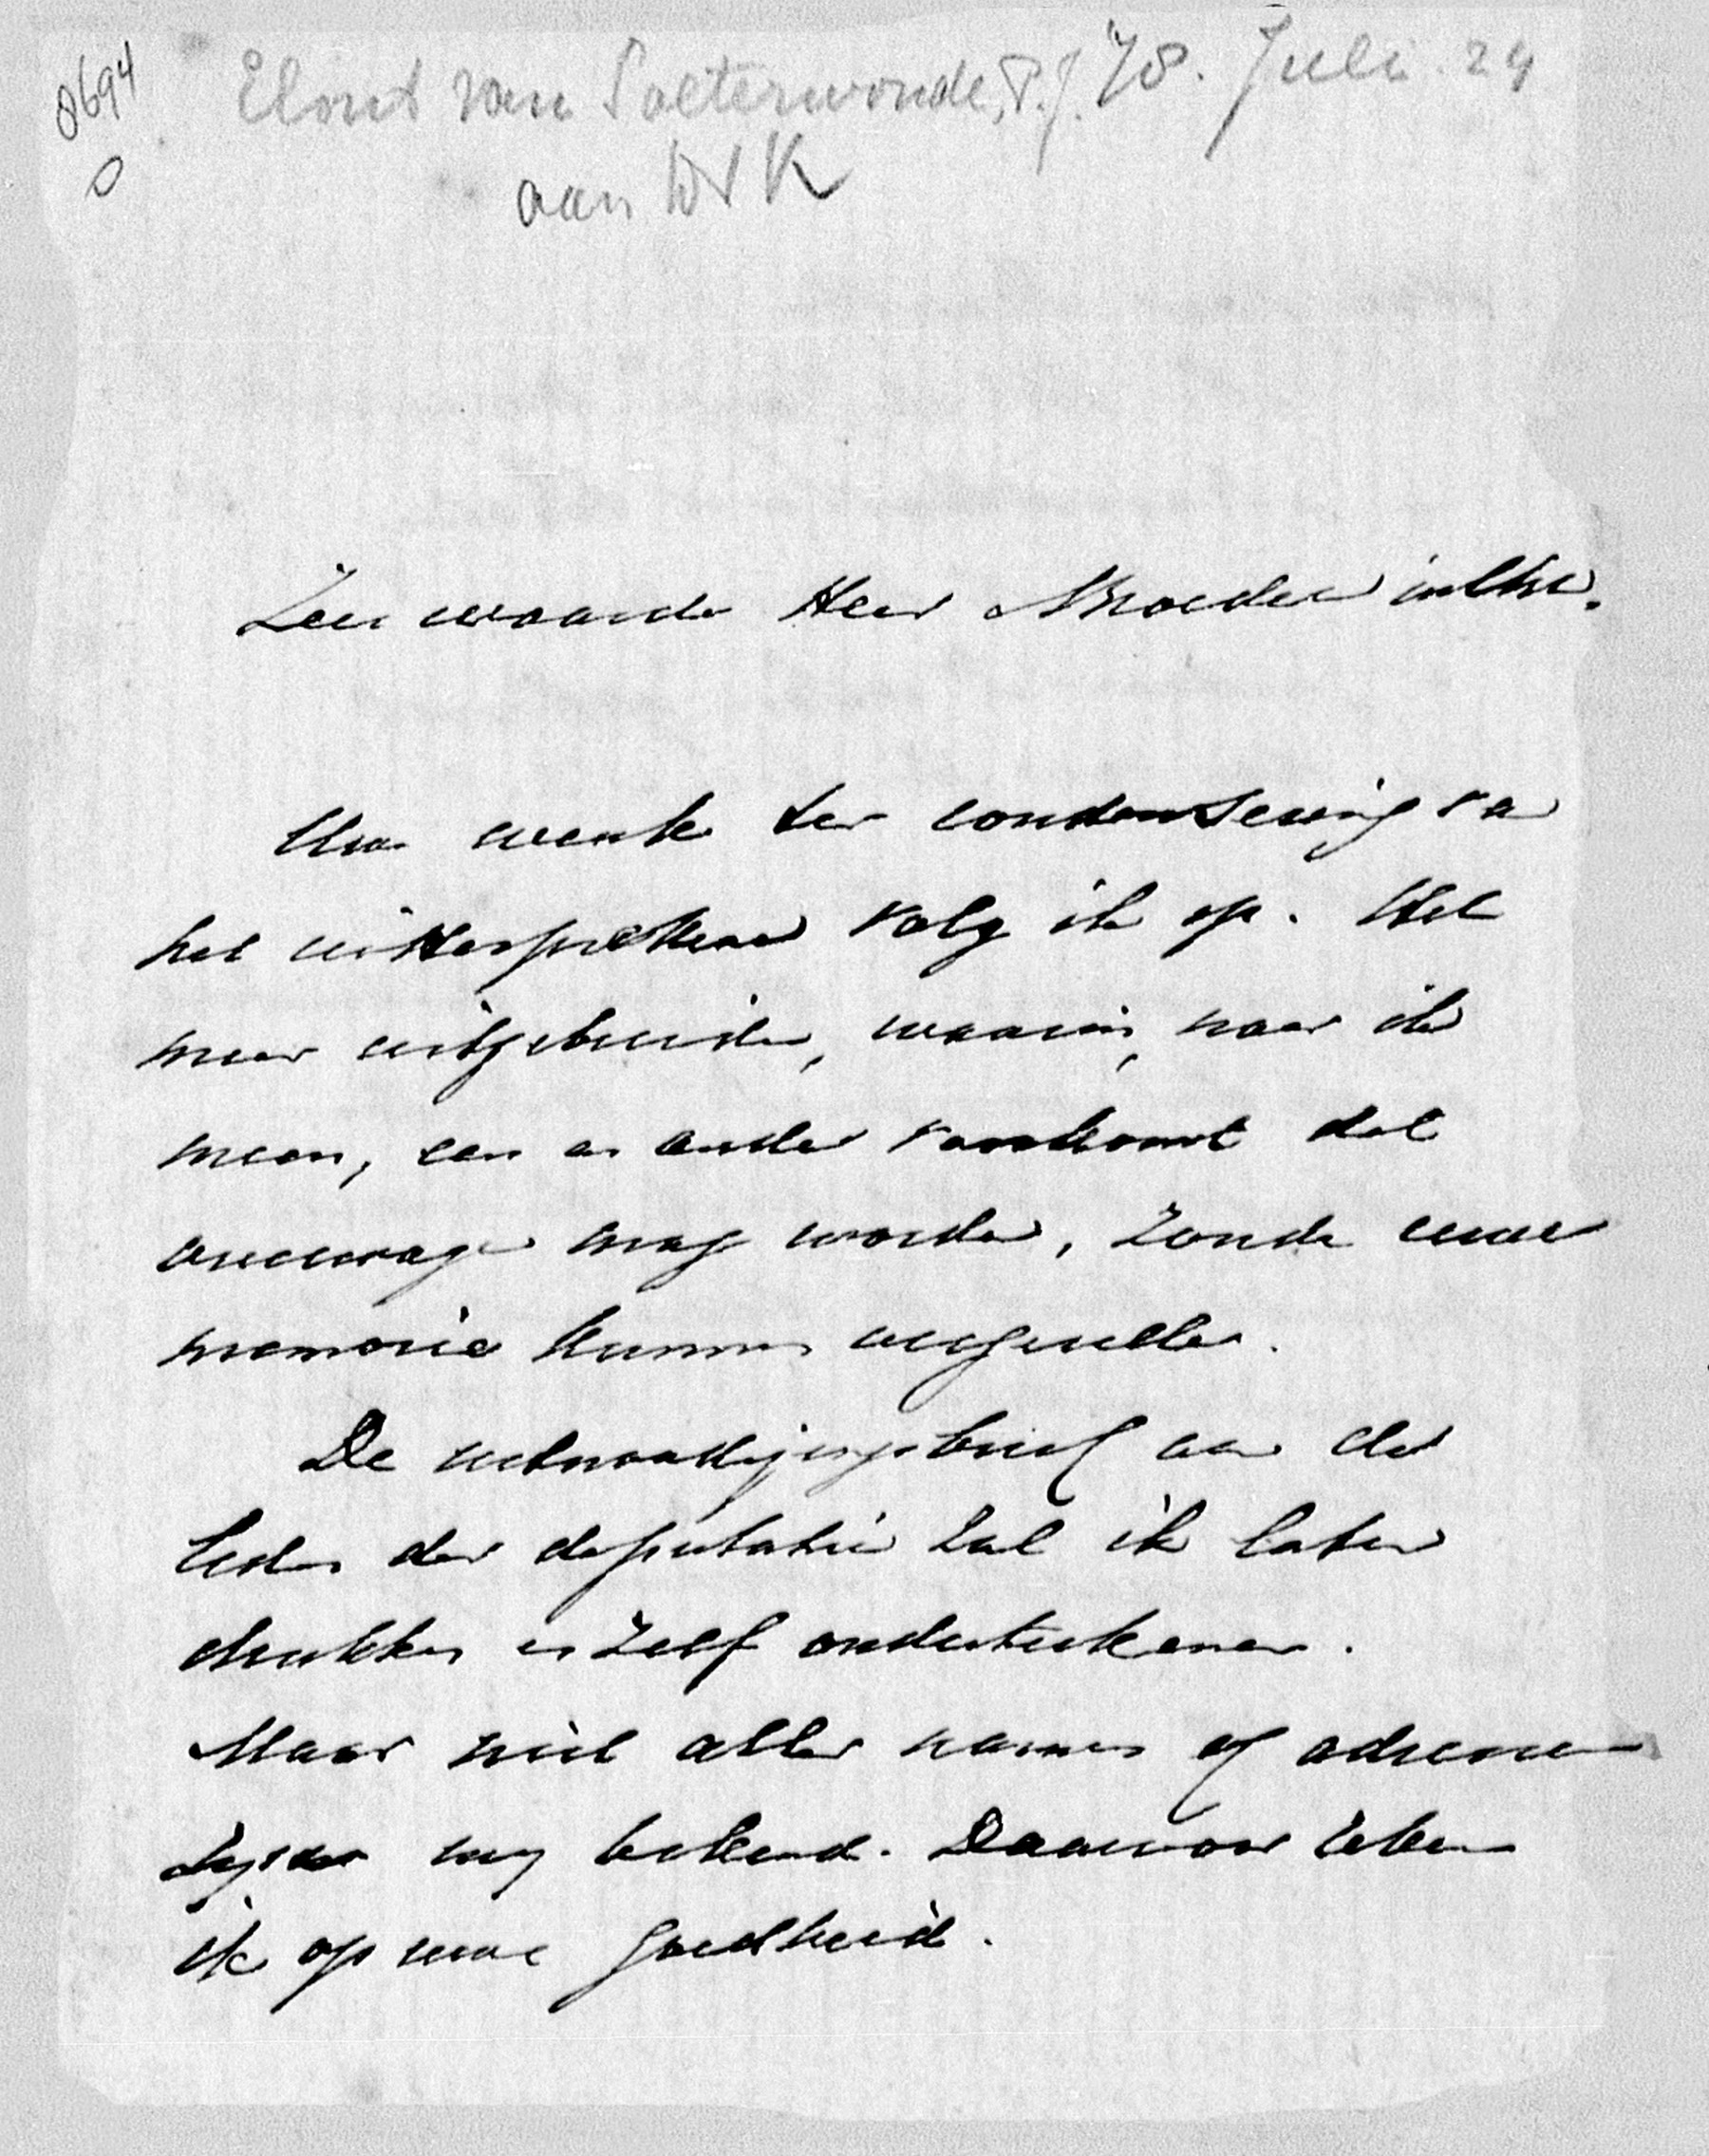 0694
0
Elout van Soeterwoude, P.J. 78. Juli. 24
aan WVK
Zeer waarde Heer & Broeder in Chr.
Uw wenk ter condenseering van
het uittespreken volg ik op. Het
meer uitgebreide, waarin, naar ik
meen, een en ander voorkomt dat
overwogen mag worden, zonde eene
memorie kunnen
De uitnoodigingsbrief aan de
leden der deputatie zal ik laten
drukken en zelf onderteekenen.
Maar niet aller namen of adressen
zijn my bekend. Daarvoor reken
ik op uwe goedheid.